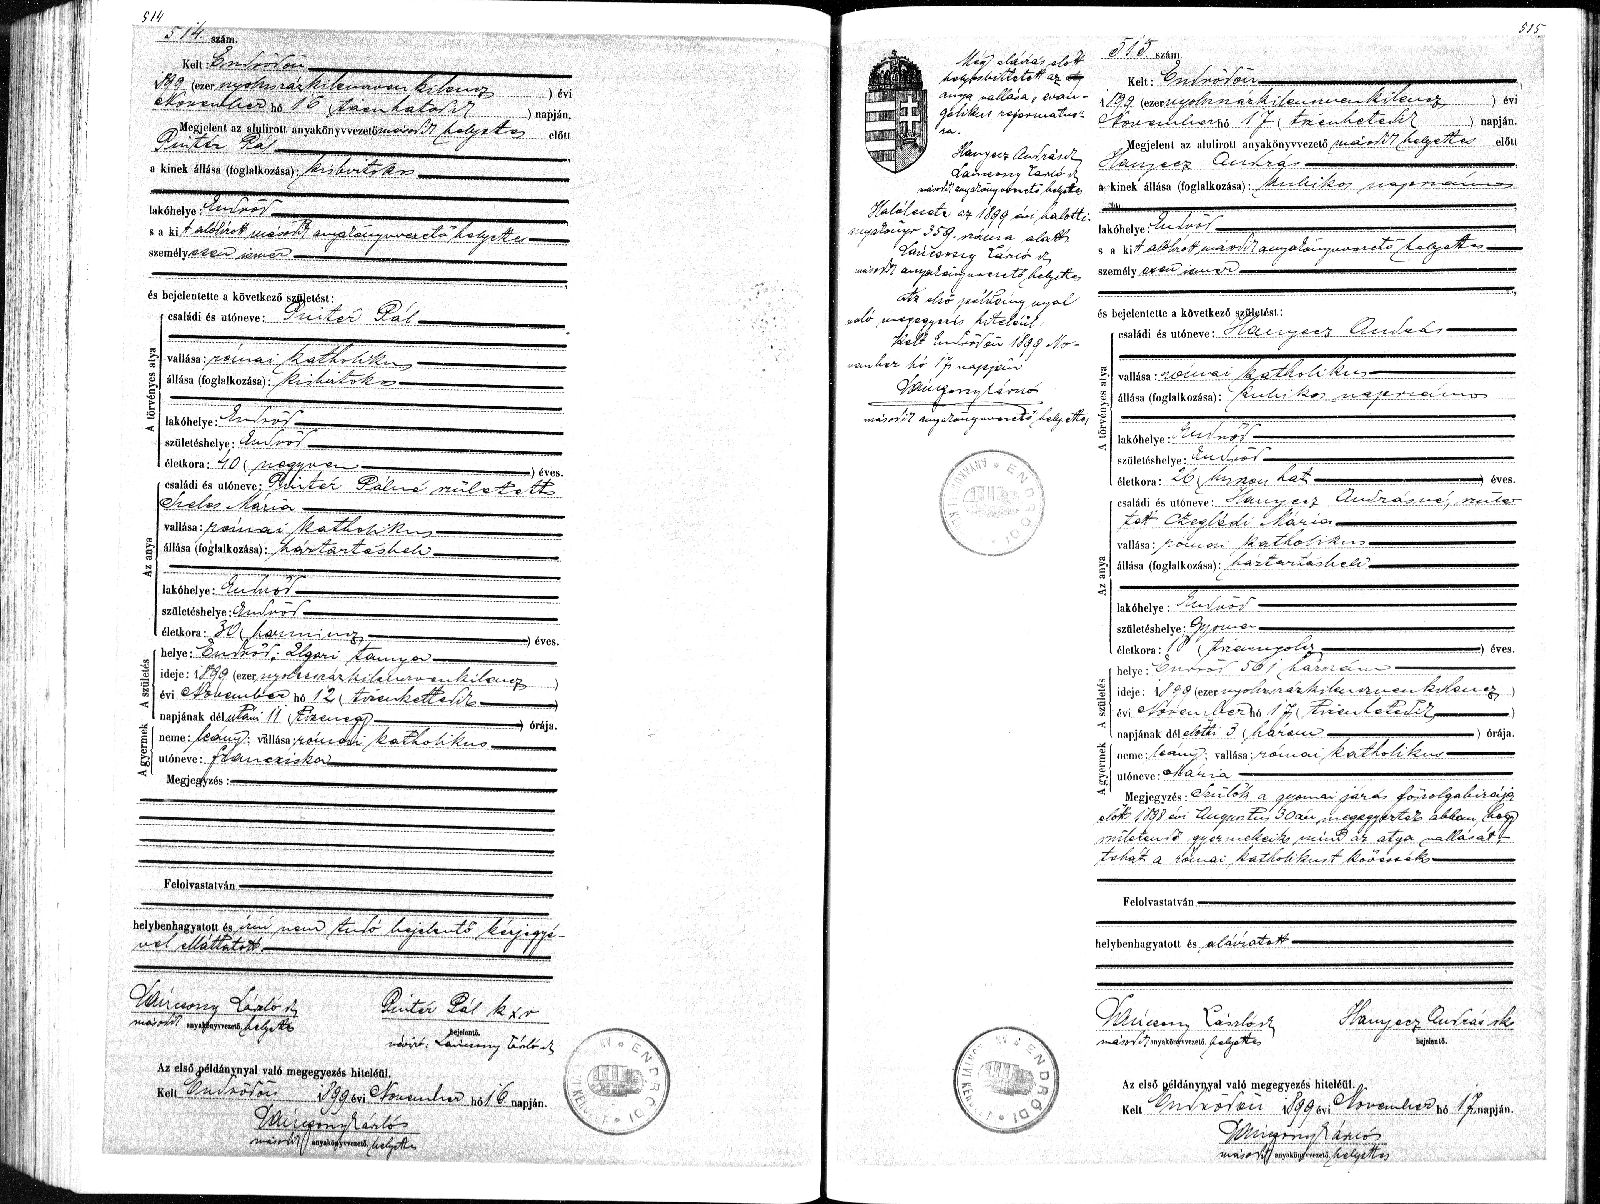 514
514. szám.
Kelt: Endrődön
1899 (ezernyolczszázkilenczvenkilencz) évi
November hó 16 (tizenhatodik) napján.
Megjelent az alulirott anyakönyvvezető második helyettes előtt
Pinter Pál
a kinek állása (foglalkozása): kisbirtokos
lakóhelye: Endrőd
s a kit alólirott második anyakönyvvezető helyettes
személyesen ismer
és bejelentette a következő születést:
A törvényes atya
családi és utóneve: Pinter Pál
vallása: római katholikus
állása (foglalkozása): kisbirtokos
lakóhelye: Endrőd
születéshelye: Endrőd
életkora: 40 (negyven) éves.
Az anya
családi és utóneve: Pinter Pálné született
Szeles Mária
vallása: római katholikus
állása (foglalkozása): háztartásbeli
lakóhelye: Endrőd
születéshelye: Endrőd
életkora: 30 (harmincz) éves.
A születés
helye: Endrőd, Ugari tanya
ideje: 1899 (ezernyolczszázkilenczvenkilencz)
évi November hó 12 (tizenkettedik)
napjának délutáni 11 (tizenegy) órája.
A gyermek
neme: leány; vallása: római katholikus
utóneve: Francziska
Megjegyzés:
Felolvastatván
helybenhagyatott és irni nem tudó bejelentő kézjegyé-
vel elláttatott
Láncsony László sk
második anyakönyvvezető helyettes
Pintér Pál k x v
bejelentő.
névíró: Láncsony László sk
Az első példánynyal való megegyezés hiteléül.
Kelt Endrődön 1899 évi November hó 16 napján.
Láncsony László
második anyakönyvvezető helyettes
515
Még aláírás előtt
helyesbíttetett az
anya vallása, evan-
gélikus református-
ra.
Hanyecz András sk
Láncsony László sk
második anyakönyvvezető helyettes
Halálesete az 1899 évi halotti
anyakönyv 359 száma alatt
Láncsony László sk
második anyakönyvvezető helyettes
Az első példánynyal
való megegyezés hiteléül
Kelt Endrődön 1899 No-
vember hó 17 napján
Láncsony László
második anyakönyvvezető helyettes
515 szám
Kelt: Endrődön
1899 (ezernyolczszázkilenczvenkilencz) évi
November hó 17 (tizenhetedik) napján.
Megjelent az alulirott anyakönyvvezető második helyettes előtt
Hanyecz András
a kinek állása (foglalkozása): kubikos napszámos
lakóhelye: Endrőd
s a kit alólirott második anyakönyvvezető helyettes
személyesen ismer
és bejelentette a következő születést:
A törvényes atya
családi és utóneve: Hanyecz András
vallása: római katholikus
állása (foglalkozása): kubikos napszámos
lakóhelye: Endrőd
születéshelye: Endrőd
életkora: 26 (huszonhat) éves.
Az anya
családi és utóneve: Hanyecz Andrásné, szüle-
tett Czeglédi Mária
vallása: római katholikus
állása (foglalkozása): háztartásbeli
lakóhelye: Endrőd
születéshelye: Gyoma
életkora: 18 (tizennyolcz) éves.
A születés
helye: Endrőd 561 házszám
ideje: 1899 (ezernyolczszázkilenczvenkilencz)
évi November hó 17 (tizenhetedik)
napjának délelőtti 3 (három) órája.
A gyermek
neme: leány; vallása: római katholikus
utóneve: Mária
Megjegyzés: Szülők a gyomai járás főszolgabirája
előtt 1898 évi Augusztus 30án megegyeztek abban, hogy
születendő gyermekeik mind az atya vallását,
tehát a római katholikust kövessék
Felolvastatván
helybenhagyatott és aláíratott
Láncsony László sk
második anyakönyvvezető helyettes
Hanyecz András sk
bejelentő.
Az első példánynyal való megegyezés hiteléül.
Kelt Endrődön 1899 évi November hó 17 napján.
Láncsony László
második anyakönyvvezető helyettes